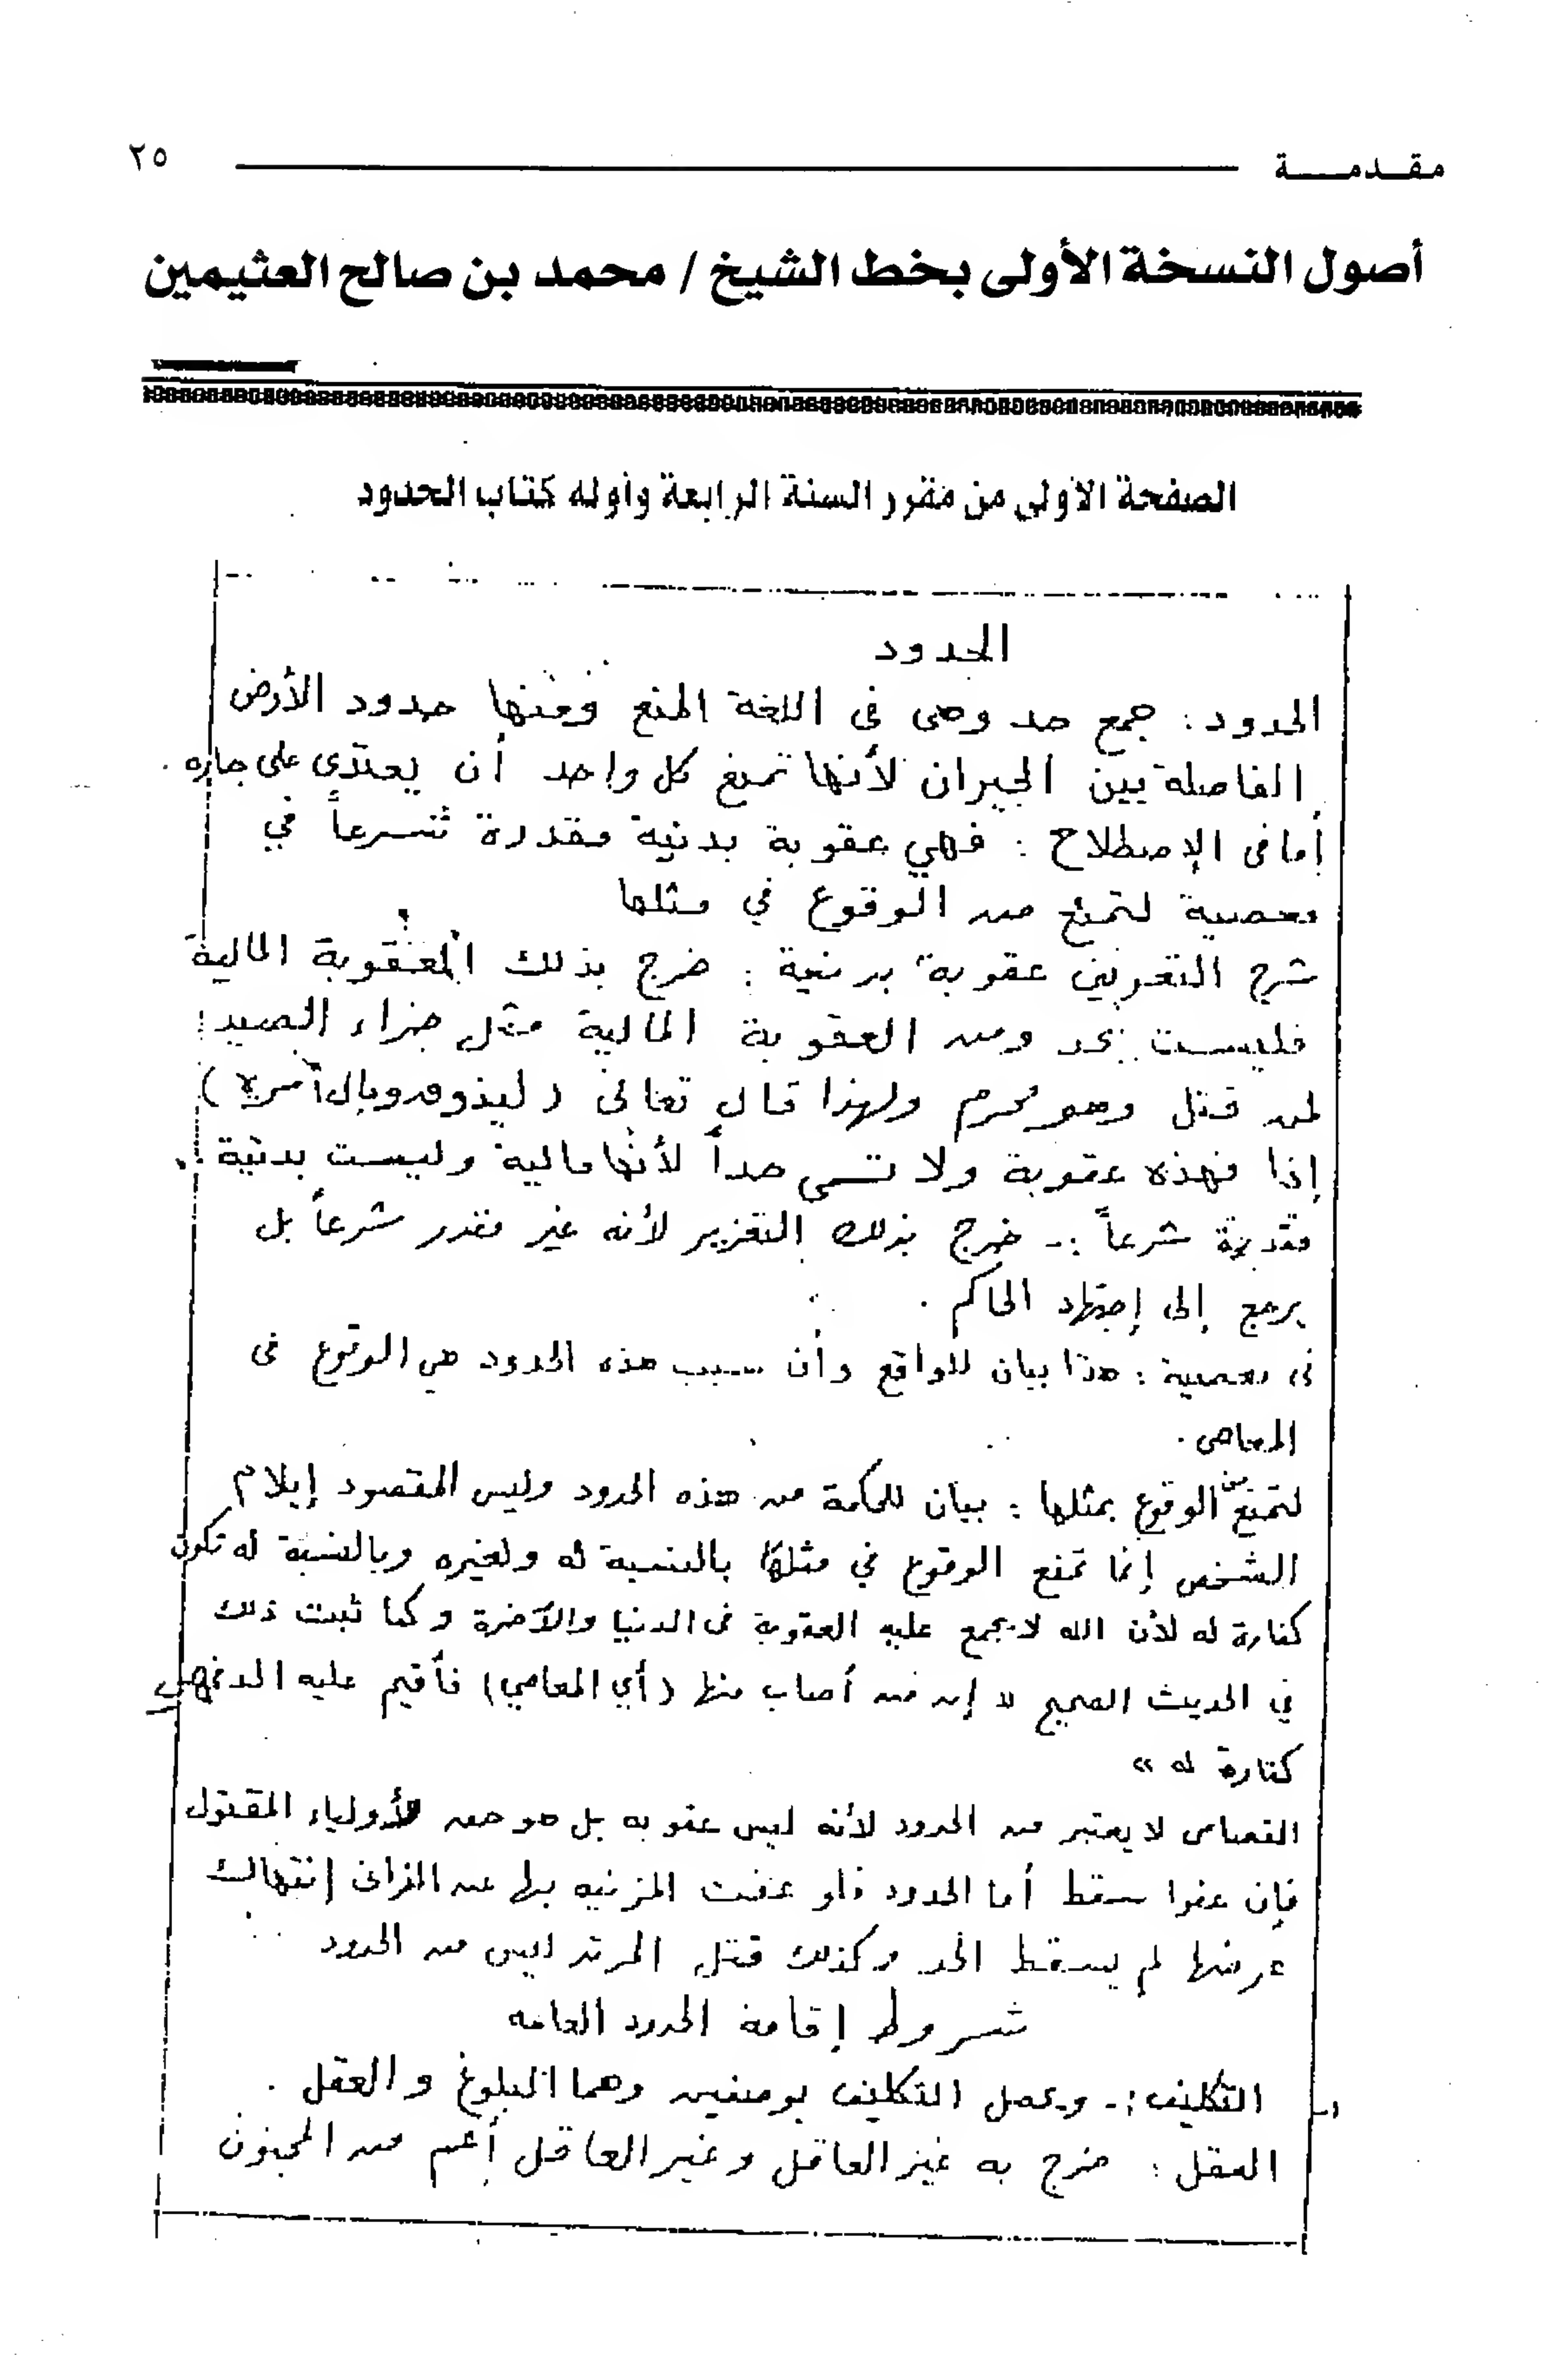 مقدمة ٢٥
أصول النسخة الأولى بخط الشيخ / محمد بن صالح العثيمين
الصفحة الأولى من مقرر السنة الرابعة وأوله كتاب الحدود
الحدود
الحدود : جمع حد وهى فى اللغة المنع ومنها حدود الأرض
الفاصلة بين الجيران لأنها تمنع كل واحد أن يعتدى على جاره .
أما فى الإصطلاح : فهي عقوبة بدنية مقدرة شرعاً في
معصية لتمنع من الوقوع في مثلها
شرح التعريف عقوبة بدنية : خرج بذلك العقوبة المالية
فليست بحد ومن العقوبة المالية مثل جزاء الصيد
لمن قتل وهو محرم ولهذا قال تعالى ( ليذوق وبال أمره )
إذا فهذه عقوبة ولا تسمى حداً لأنها مالية وليست بدنية .
مقدرة شرعاً :- خرج بذلك التعزير لأنه غير مقدر شرعاً بل
يرجع إلى إجتهاد الحاكم .
فى معصية : هذا بيان للواقع وأن سبب هذه الحدود هي الوقوع فى
المعاصى .
لتمنع من الوقوع بمثلها : بيان للحكمة من هذه الحدود وليس المقصود إيلام
الشخص إنما تمنع الوقوع في مثلها بالنسبة له ولغيره وبالنسبة له تكون
كفارة له لأن الله لا يجمع عليه العقوبة فى الدنيا والآخرة وكما ثبت ذلك
في الحديث الصحيح « إن من أصاب منها ( أي المعاصي ) فأقيم عليه الحد فهى
كفارة له »
القصاص لا يعتبر من الحدود لأنه ليس عقوبه بل هو حق لأولياء المقتول
فإن عفوا سقط أما الحدود فلو عفت المزنيه بها عن الزانى إنتهاك
عرضها لم يسقط الحد وكذلك قتل المرتد ليس من الحدود
شروط إقامة الحدود العامه
١- التكليف :- ويحصل التكليف بوصفين وهما البلوغ والعقل .
العقل : خرج به غير العاقل وغير العاقل أعم من المجنون